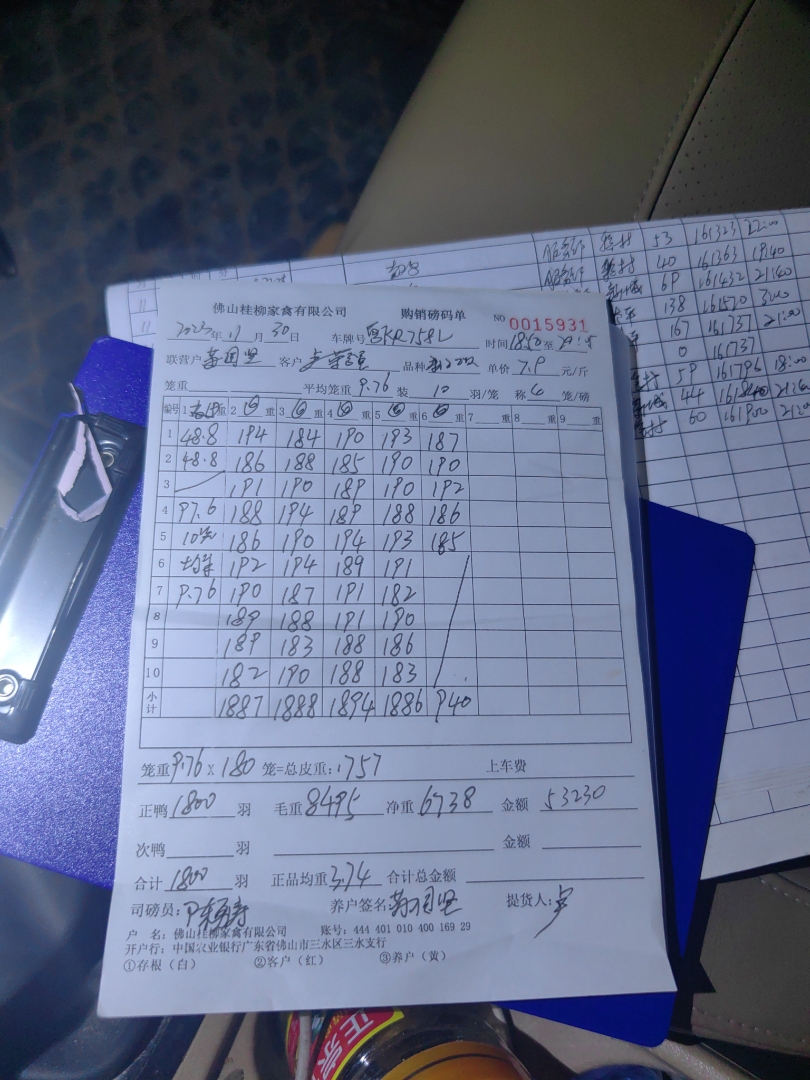 佛山桂柳家禽有限公司 购销磅码单 NO 0015931
年11月30日 车牌号 KR758L 时间18:50至
联营户 客户 品种 单价7.9元/斤
笼重 平均笼重9.76 装10羽/笼 称 笼/磅
编号 1 重 2 重 3 重 4 重 5 重 6 重 7 重 8 重 9 重
1 48.8 194 184 190 193 187
2 48.8 186 188 185 190 190
3 191 190 189 190 192
4 97.6 188 194 189 188 186
5 10 186 190 194 193 185
6 192 194 189 191
7 9.76 190 187 191 182
8 189 188 191 190
9 189 183 188 186
10 182 190 188 183
小计 1887 1888 1894 1886 940
笼重9.76×180笼=总皮重:1757 上车费
正鸭1800羽 毛重8495 净重6738 金额53230
次鸭 羽 金额
合计1800羽 正品均重3.74 合计总金额
司磅员: 养户签名: 提货人:
户 名:佛山桂柳家禽有限公司 账号:444 401 010 400 169 29
开户行:中国农业银行广东省佛山市三水区三水支行
①存根(白) ②客户(红) ③养户(黄)
53 161323 22:00
40 161363 19:40
69 161432 21:40
138 161570
167 161737 21:00
0 161737
59 161796 18:00
44
60 161900
正宗